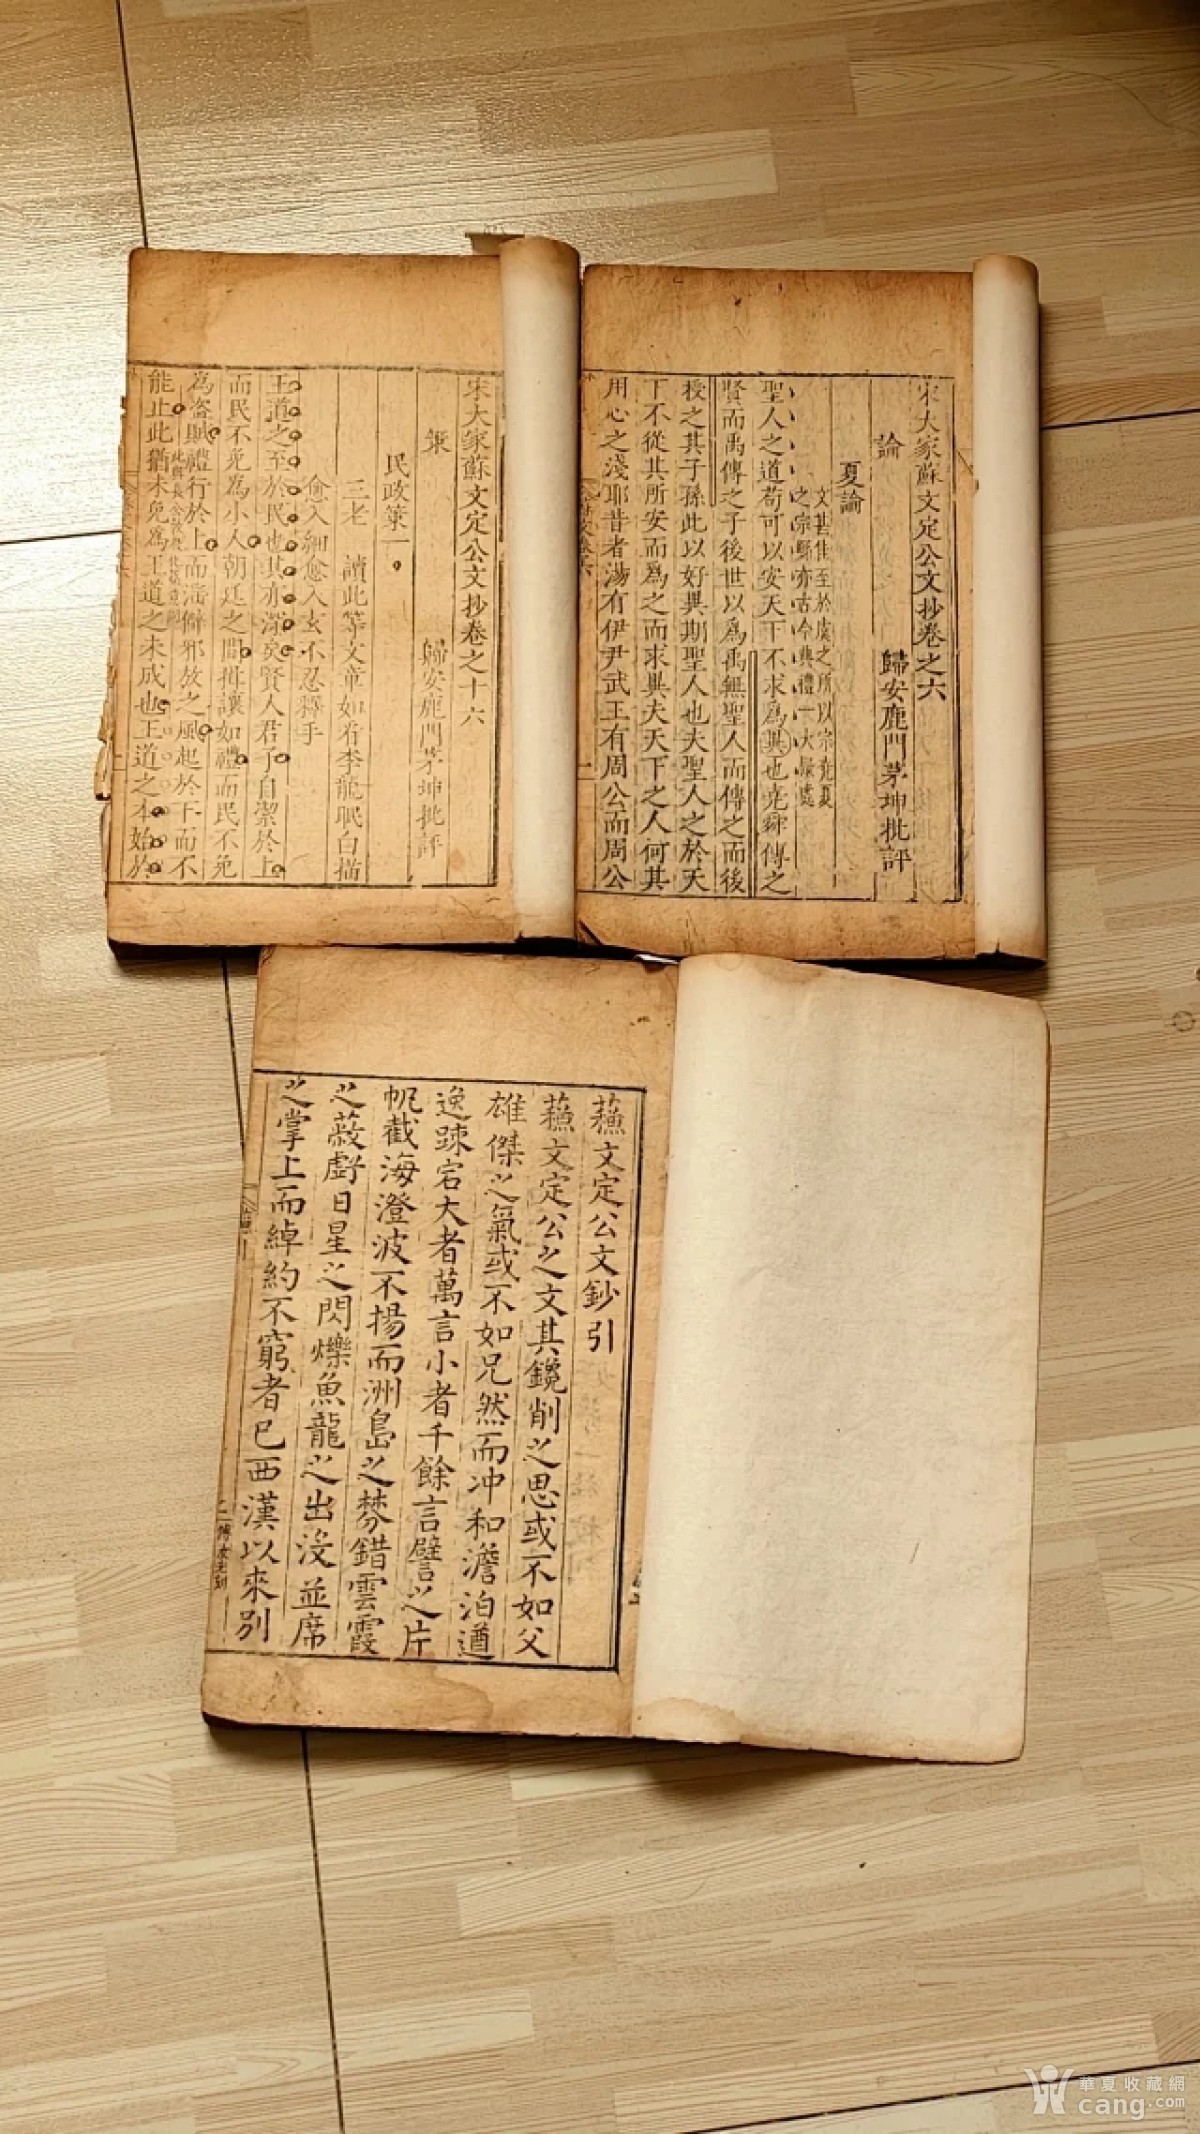 宋大家蘇文定公文抄卷之六
歸安鹿門茅坤批評
論
夏論
文甚佳至於虞之所以宗堯夏
之宗縣亦古今典禮一大處
聖人之道苟可以安天下不求為異也堯舜傳之
賢而禹傳之子後世以為禹無聖人而傳之而後
授之其子孫此以好異期聖人也夫聖人之於天
下不從其所安而為之而求異夫天下之人何其
用心之淺耶昔者湯有伊尹武王有周公而周公
宋大家蘇文定公文抄卷之十六
歸安鹿門茅坤批評
策
民政策一
三老
讀此等文章如看李龍眠白描
愈入細愈入玄不忍釋手
王道之至於民也其亦深矣賢人君子自潔於上
而民不免為小人朝廷之間揖讓如禮而民不免
為盜賊禮行於上而淫僻邪放之風起於下而不
能止此猶未免為王道之未成也王道之本始於
蘓文定公文鈔引
蘓文定公之文其鑱削之思或不如父
雄傑之氣或不如兄然而冲和澹泊遒
逸踈宕大者萬言小者千餘言譬之片
帆截海澄波不揚而洲島之棼錯雲霞
之蔽虧日星之閃爍魚龍之出沒並席
之掌上而綽約不窮者已西漢以來別
華夏收藏網
cang.com